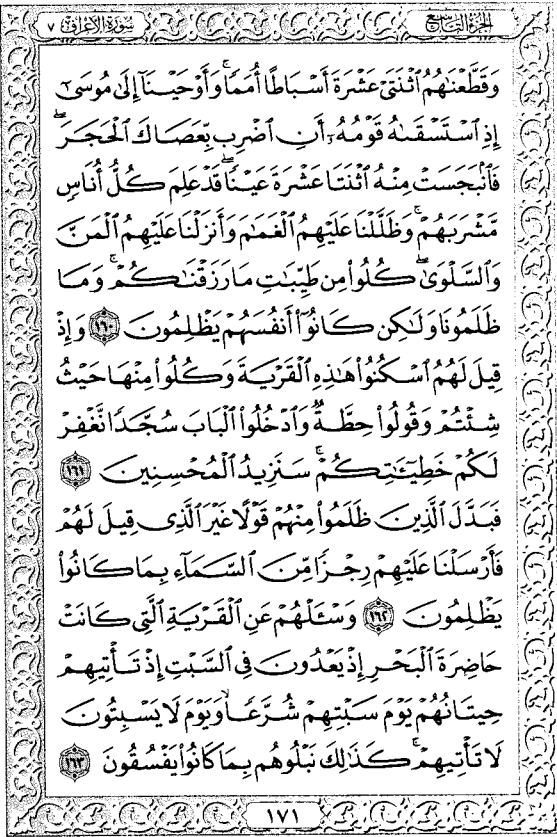 الجزء التاسع
سورة الأعراف ٧
وَقَطَّعْنَٰهُمُ ٱثْنَتَىْ عَشْرَةَ أَسْبَاطًا أُمَمًا ۚ وَأَوْحَيْنَآ إِلَىٰ مُوسَىٰٓ
إِذِ ٱسْتَسْقَىٰهُ قَوْمُهُۥٓ أَنِ ٱضْرِب بِّعَصَاكَ ٱلْحَجَرَ ۖ
فَٱنۢبَجَسَتْ مِنْهُ ٱثْنَتَا عَشْرَةَ عَيْنًا ۖ قَدْ عَلِمَ كُلُّ أُنَاسٍ
مَّشْرَبَهُمْ ۚ وَظَلَّلْنَا عَلَيْهِمُ ٱلْغَمَٰمَ وَأَنزَلْنَا عَلَيْهِمُ ٱلْمَنَّ
وَٱلسَّلْوَىٰ ۖ كُلُوا۟ مِن طَيِّبَٰتِ مَا رَزَقْنَٰكُمْ ۚ وَمَا
ظَلَمُونَا وَلَٰكِن كَانُوٓا۟ أَنفُسَهُمْ يَظْلِمُونَ ١٦٠ وَإِذْ
قِيلَ لَهُمُ ٱسْكُنُوا۟ هَٰذِهِ ٱلْقَرْيَةَ وَكُلُوا۟ مِنْهَا حَيْثُ
شِئْتُمْ وَقُولُوا۟ حِطَّةٌ وَٱدْخُلُوا۟ ٱلْبَابَ سُجَّدًا نَّغْفِرْ
لَكُمْ خَطِيٓـَٰٔتِكُمْ ۚ سَنَزِيدُ ٱلْمُحْسِنِينَ ١٦١
فَبَدَّلَ ٱلَّذِينَ ظَلَمُوا۟ مِنْهُمْ قَوْلًا غَيْرَ ٱلَّذِى قِيلَ لَهُمْ
فَأَرْسَلْنَا عَلَيْهِمْ رِجْزًا مِّنَ ٱلسَّمَآءِ بِمَا كَانُوا۟
يَظْلِمُونَ ١٦٢ وَسْـَٔلْهُمْ عَنِ ٱلْقَرْيَةِ ٱلَّتِى كَانَتْ
حَاضِرَةَ ٱلْبَحْرِ إِذْ يَعْدُونَ فِى ٱلسَّبْتِ إِذْ تَأْتِيهِمْ
حِيتَانُهُمْ يَوْمَ سَبْتِهِمْ شُرَّعًا وَيَوْمَ لَا يَسْبِتُونَ ۙ
لَا تَأْتِيهِمْ ۚ كَذَٰلِكَ نَبْلُوهُم بِمَا كَانُوا۟ يَفْسُقُونَ ١٦٣
١٧١